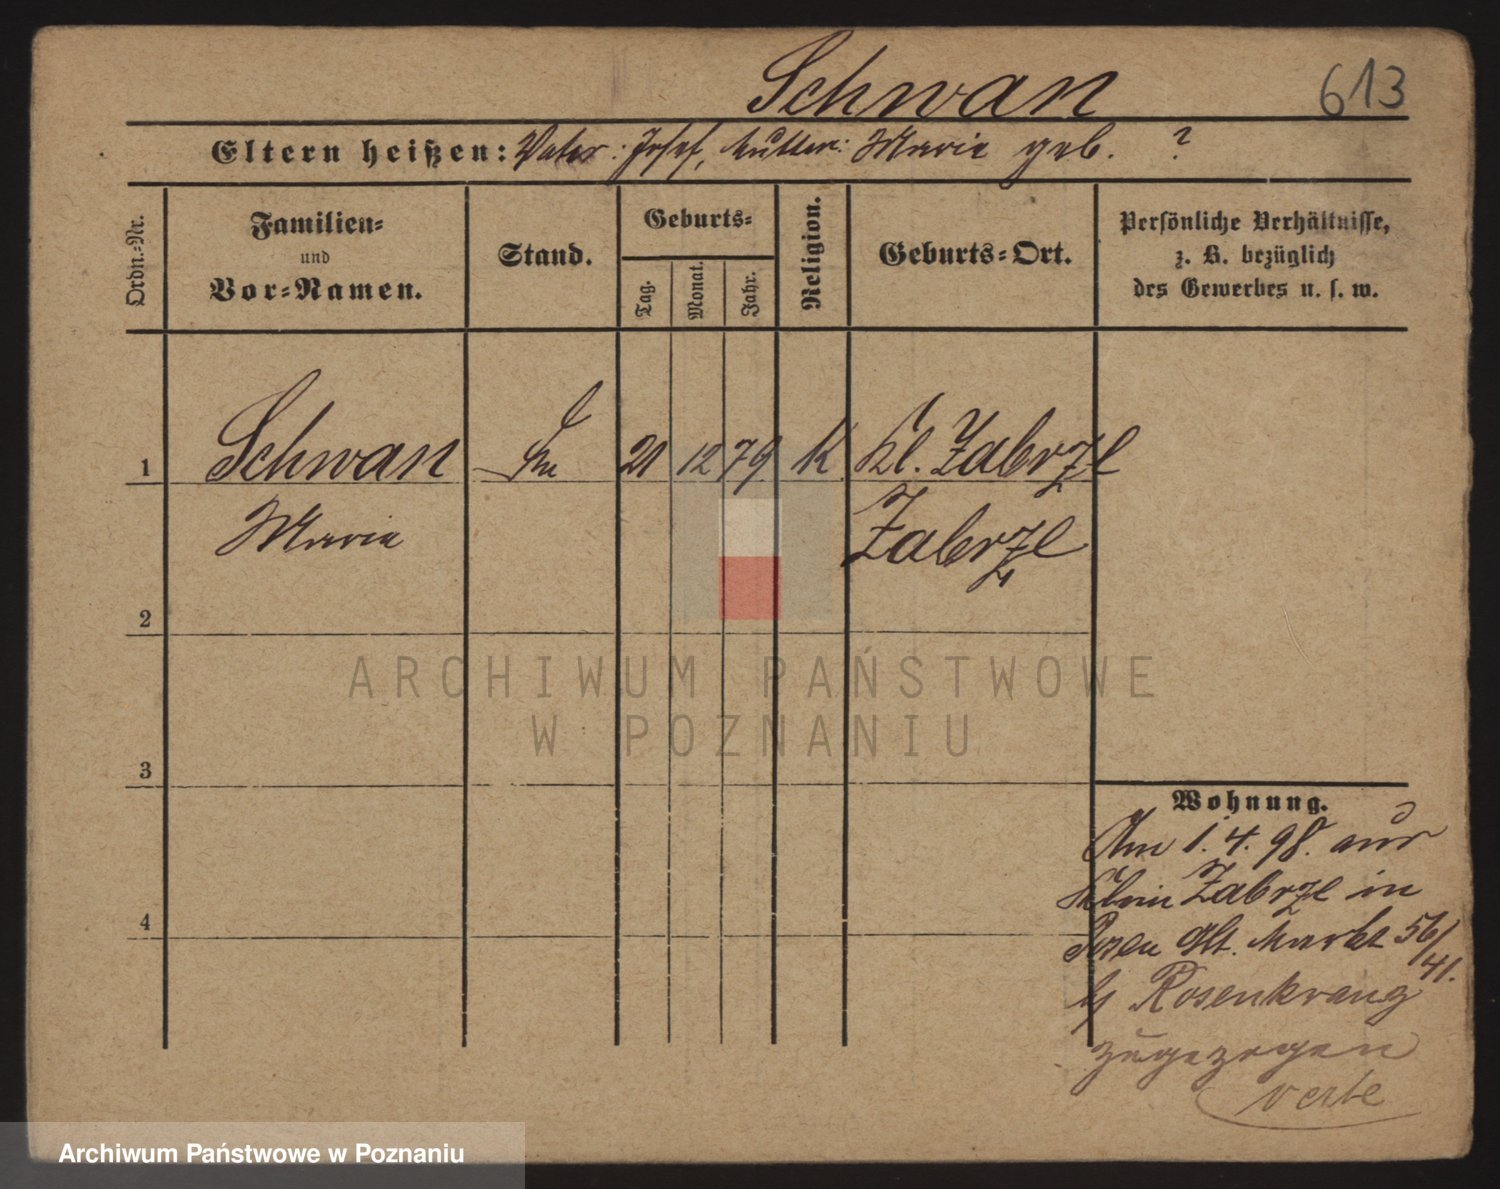 Schwan 613
Eltern heißen: Vater: Josef, Mutter: Marie geb. ?
Ordn.-Nr.
Familien-
und
Vor-Namen.
Stand.
Geburts-
Tag.
Monat.
Jahr.
Religion.
Geburts-Ort.
Persönliche Verhältnisse,
z. B. bezüglich
des Gewerbes u. s. w.
1 Schwan 21 12 79 K Kl. Zabrze
Marie Zabrze
2
3
4
Wohnung.
Am 1. 4. 98. aus
Klein Zabrze in
Posen Alt. Markt 56/
41.
b/ Rosenkranz
zugezogen
verte
ARCHIWUM PAŃSTWOWE
W POZNANIU
Archiwum Państwowe w Poznaniu